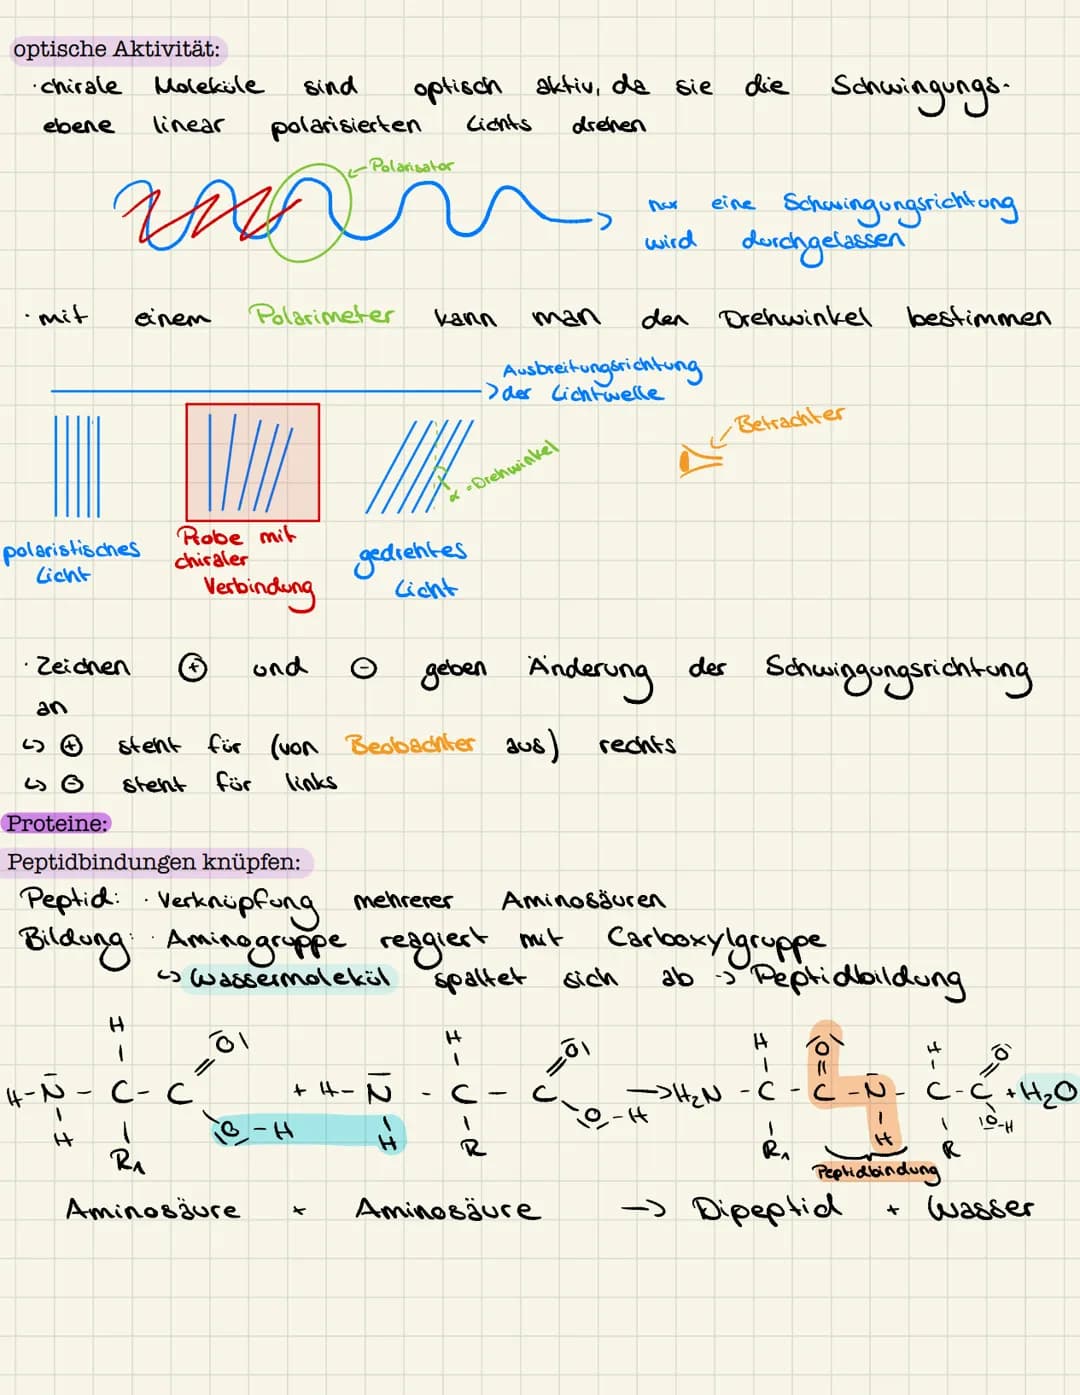 optische Aktivität:
· chirale Moleküle sind optisch aktiv, da sie die Schwingungs-
ebene linear polarisierten Lichts drehen
Polarisator
nur eine Schwingungsrichtung
wird durchgelassen
· mit einem Polarimeter kann man den Drehwinkel bestimmen
Ausbreitungsrichtung
der Lichtwelle
Betrachter
α = Drehwinkel
polaristisches
Licht
Probe mit
chiraler
Verbindung
gedrehtes
Licht
· Zeichnen ⊕ und ⊖ geben Änderung der Schwingungsrichtung
an
↳ ⊕ steht für (von Beobachter aus) rechts
↳ ⊖ steht für links
Proteine:
Peptidbindungen knüpfen:
Peptid: · Verknüpfung mehrerer Aminosäuren
Bildung: · Aminogruppe reagiert mit Carboxylgruppe
↳ Wassermolekül spaltet sich ab -> Peptidbildung
H H H H
O O O O
H-N - C - C + H-N - C - C -> H₂N - C - C - N - C - C + H₂O
O-H O-H O-H
H R₁ H R R₁ H R
Peptidbindung
Aminosäure + Aminosäure -> Dipeptid + Wasser